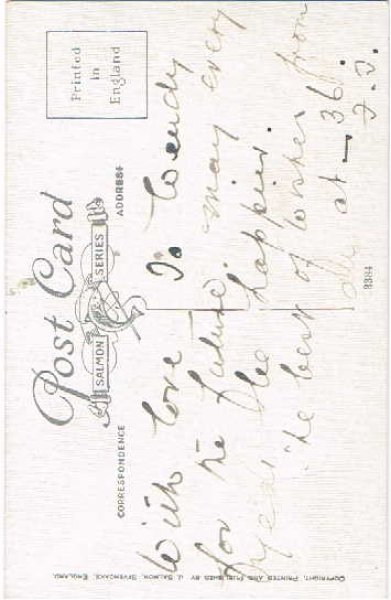 Post Card
SALMON SERIES
Printed
in
England
CORRESPONDENCE
ADDRESS
With love To Wendy
for the future, may every
year be happier.
he best of wishes from
all at – 36.
COPYRIGHT, PRINTED AND PUBLISHED BY J. SALMON, SEVENOAKS, ENGLAND.
3384